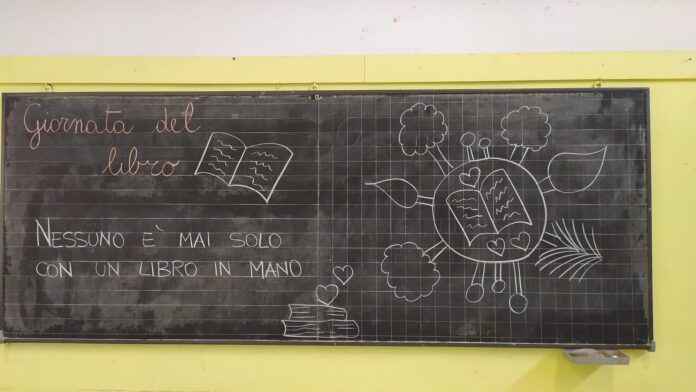 Giornata del
libro
NESSUNO E' MAI SOLO
CON UN LIBRO IN MANO